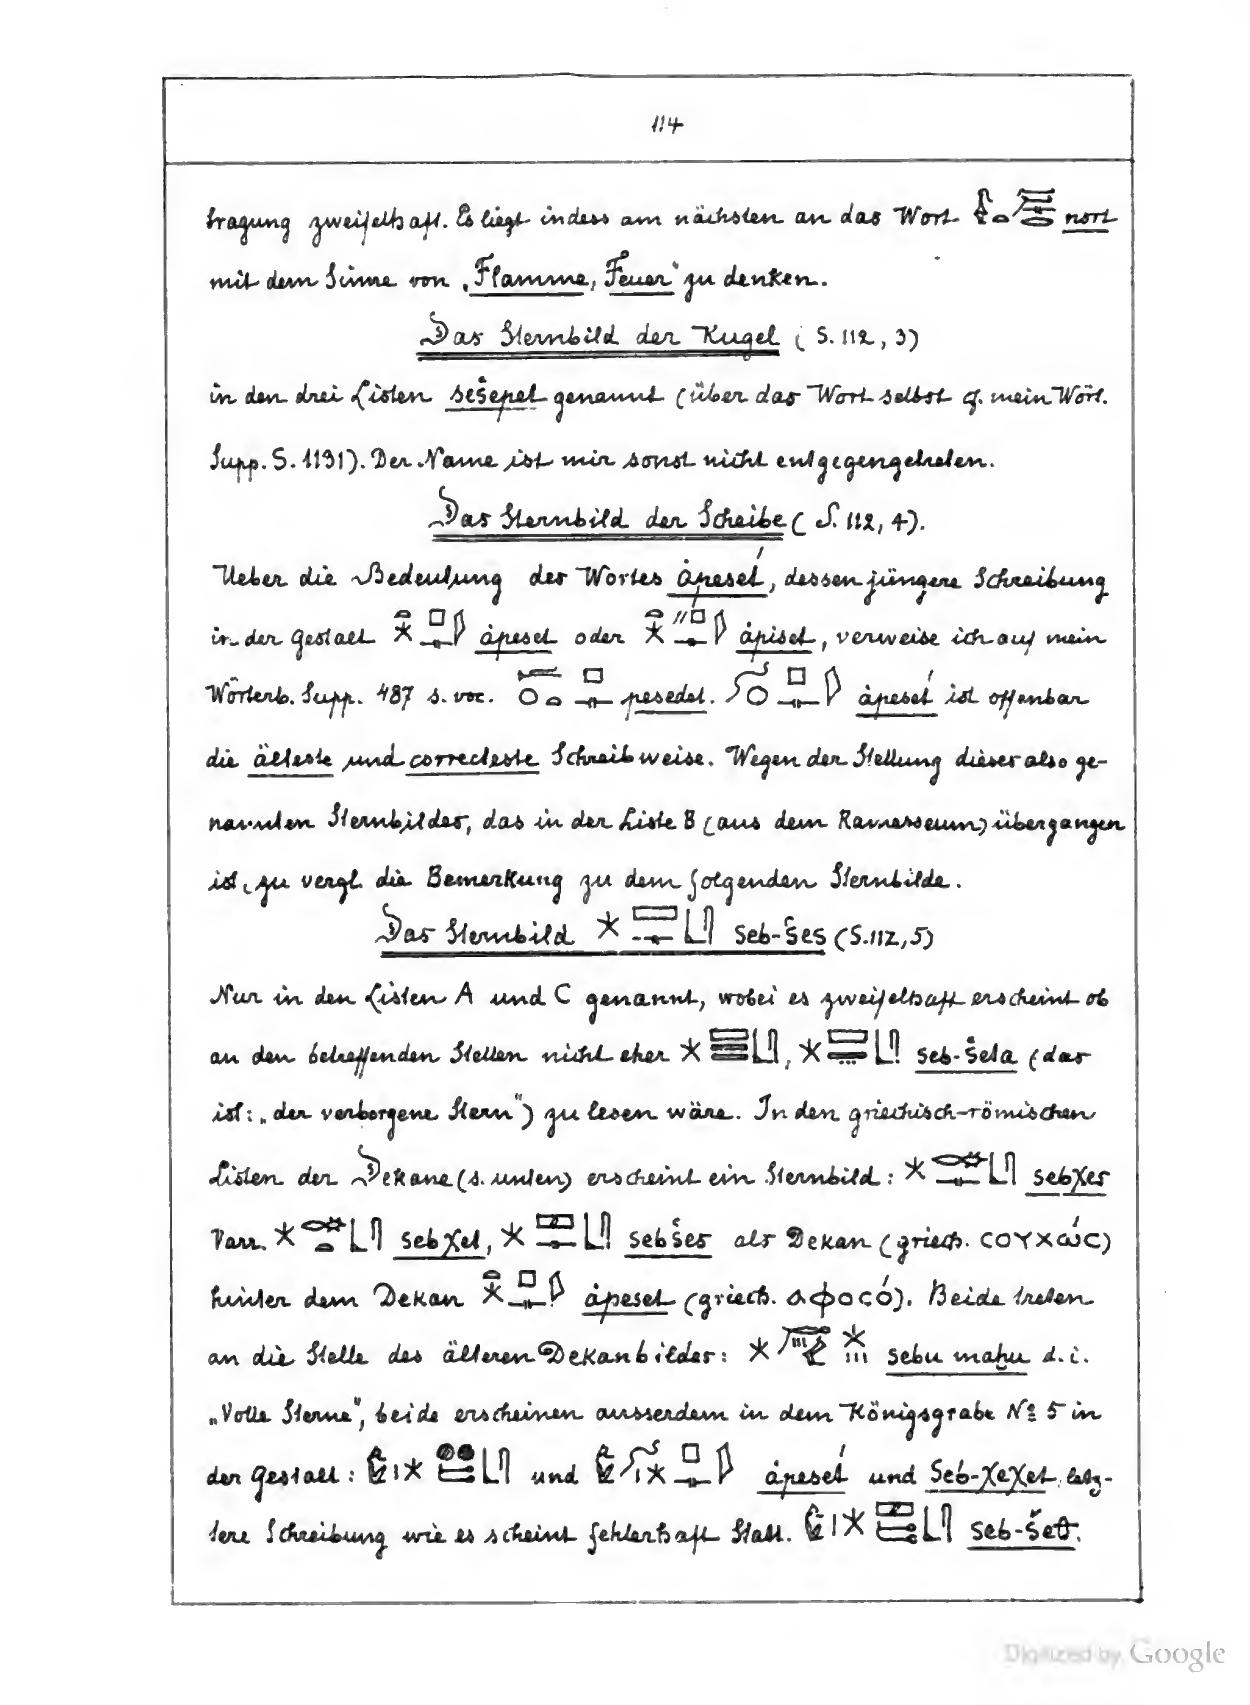 114
tragung zweifelhaft. Es liegt indess am nächsten an das Wort nosrt
mit dem Sinne von „Flamme, Feuer" zu denken.
Das Sternbild der Kugel (S. 112, 3)
in den drei Listen sešepet genannt (über das Wort selbst cf. mein Wört.
Supp. S. 1191). Der Name ist mir sonst nicht entgegengetreten.
Das Sternbild der Scheibe (S. 112, 4).
Ueber die Bedeutung des Wortes ápeset, dessen jüngere Schreibung
in der Gestalt ápeset oder ápiset, verweise ich auf mein
Wörterb. Supp. 487 s. voc. pesedet. ápeset ist offenbar
die älteste und correcteste Schreibweise. Wegen der Stellung dieses also ge-
nannten Sternbildes, das in der Liste B (aus dem Ramesseum) übergangen
ist, zu vergl. die Bemerkung zu dem folgenden Sternbilde.
Das Sternbild seb-šes (S. 112, 5)
Nur in den Listen A und C genannt, wobei es zweifelhaft erscheint ob
an den betreffenden Stellen nicht eher seb-šeta (das
ist: „der verborgene Stern") zu lesen wäre. In den griechisch-römischen
Listen der Dekane (s. unten) erscheint ein Sternbild: sebχes
Varr. sebχet, sebšes als Dekan (griech. ϹΟΥΧώϹ)
hinter dem Dekan ápeset (griech. ΑφοϹό). Beide treten
an die Stelle des älteren Dekanbildes: sebu mahu d. i.
„Volle Sterne", beide erscheinen ausserdem in dem Königsgrabe Nº 5 in
der Gestalt: und ápeset und Seb-χeχet, letz-
tere Schreibung wie es scheint fehlerhaft statt. seb-šeθ.
Digitized by Google